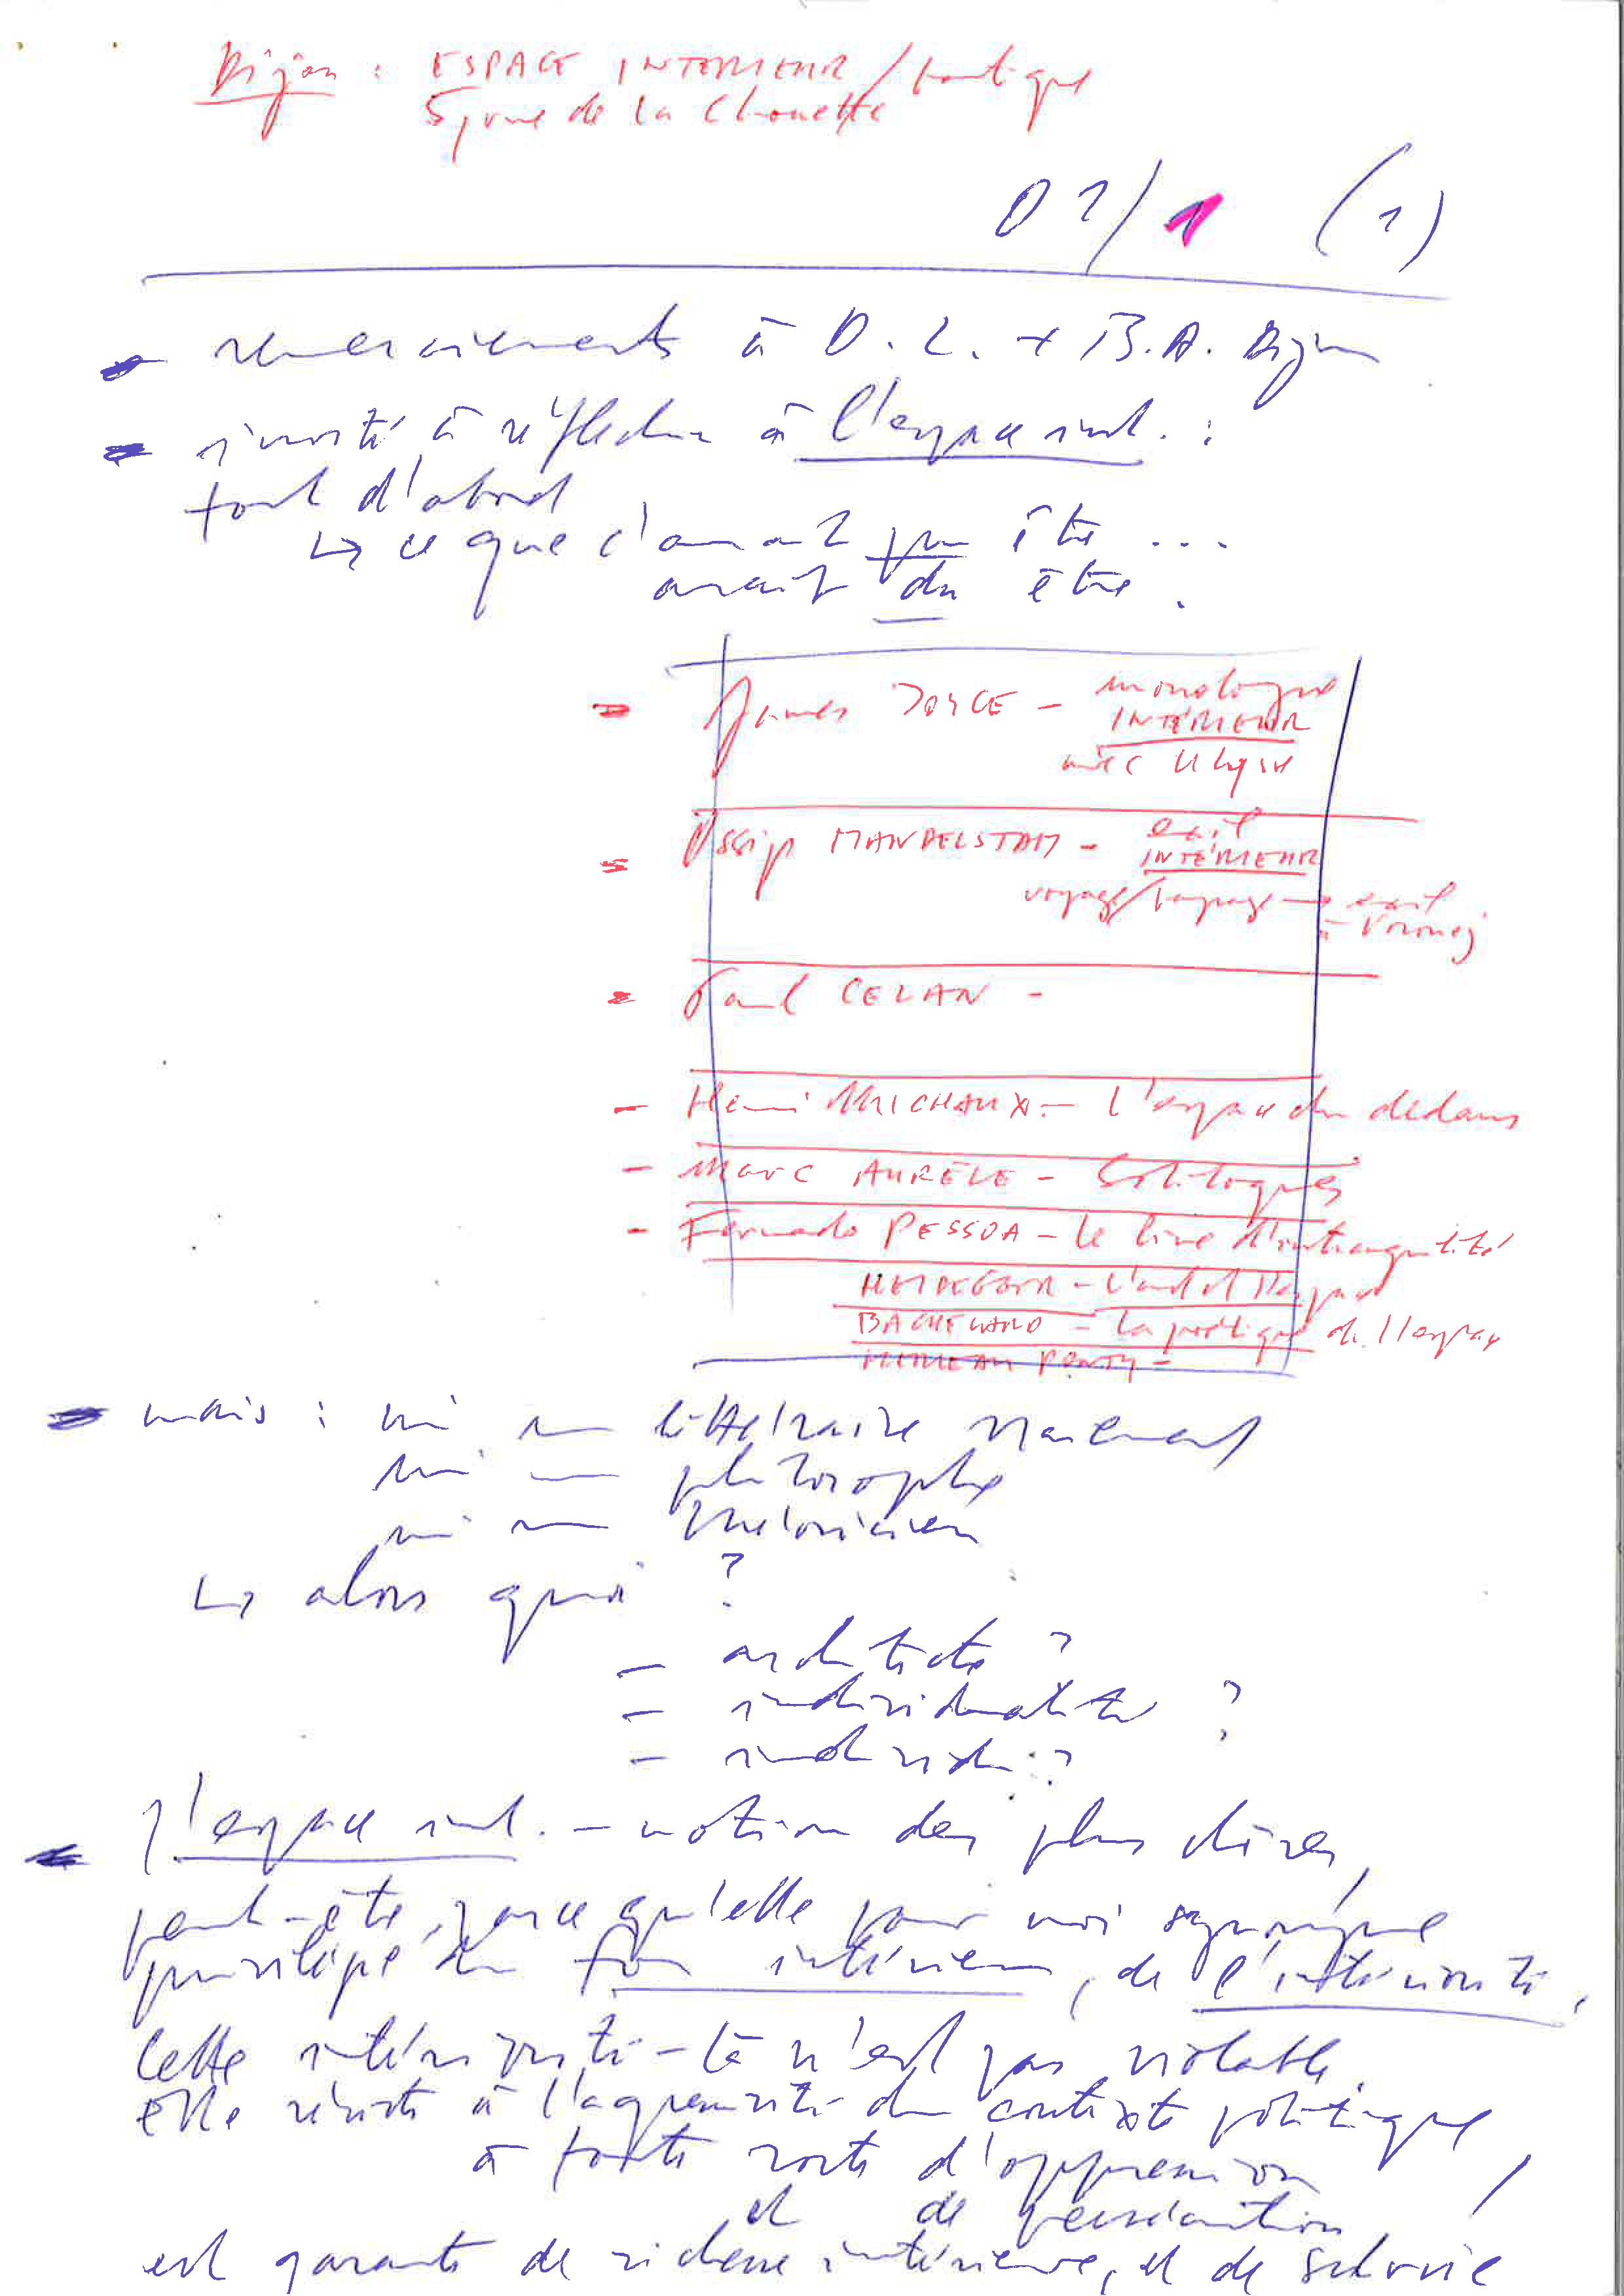 Dijon : ESPACE INTERIEUR / boutique
5, rue de la Chouette
01/1 (1)
- remerciements à D. L. + B.A. Dijon
- invité à réfléchir à l'espace int. :
tout d'abord
↳ ce que ç'aurait pu être ...
aurait du être .
- James JOYCE - monologue
INTÉRIEUR
avec Ulysse
- Ossip MANDELSTAM - exil
INTÉRIEUR
voyage/langage → exil
à Voronej
- Paul CELAN -
- Henri MICHAUX - L'espace du dedans
- Marc AURÈLE - Soliloques
- Fernado PESSOA - le livre d'intranquilité
HEIDEGGER - L'art et l'espace
BACHELARD - la poétique de l'espace
MERLEAU PONTY -
- mais : ni un littéraire vraiment
ni — philosophe
ni — théoricien
↳ alors quoi ?
- architecte ?
- individualité ?
- individu ?
- l'espace int. - notion des plus chères,
peut-être, parce qu'elle pour moi synonyme
privilégié du for intérieur, de l'intériorité,
Cette intériorité-là n'est pas violable.
elle résiste à l'agressivité du contexte politique
à toute sorte d'oppression
et de persécution,
est garante de richesse intérieure, et de survie